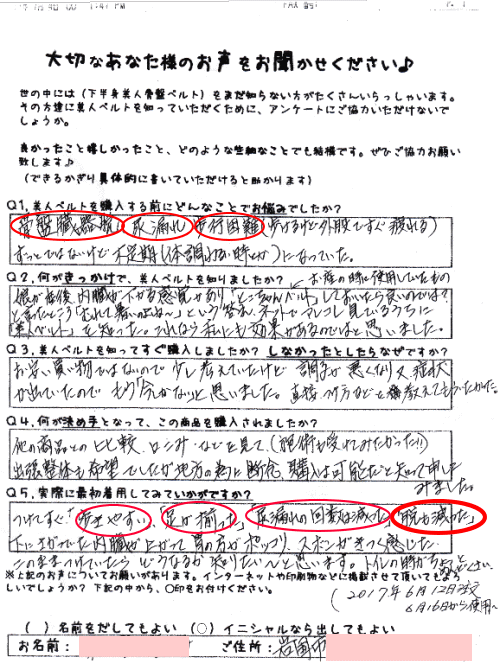 大切なあなた様のお声をお聞かせください♪
世の中には(下半身美人骨盤ベルト)をまだ知らない方がたくさんいらっしゃいます。
その方達に美人ベルトを知っていただくために、アンケートにご協力いただけないで
しょうか。
良かったこと嬉しかったこと、どのような些細なことでも結構です。ぜひご協力お願い
致します♪
(できるかぎり具体的に書いていただけると助かります)
Q1.美人ベルトを購入する前にどんなことでお悩みでしたか?
骨盤臓器脱 尿漏れ 歩行困難 歩けるけど外股ですぐ疲れる)
ずっとではないけど 不定期(体調わるい時など)になっていた。
Q2.何がきっかけで、美人ベルトを知りましたか? お産の時に使用していたもの
娘が産後内臓が下がる感覚があり「とこちゃんベルト」しておいたら良いのでは?
と言ったところ「むれて暑いのよね〜」という答え。ネットでアレコレ見ているうちに
「美人ベルト」を知った。これなら私にも効果があるのではと思いました。
Q3.美人ベルトを知ってすぐ購入しましたか? しなかったとしたらなぜですか?
お安い買い物ではないので少し考えていたけど 調子が悪くなり又症状
が出ていたので もう「今しかない」と思いました。直接つけ方などを教えてもらいたかった。
Q4.何が決め手となって、この商品を購入されましたか?
他の商品との比較、口コミなどを見て、(施術も受けてみたかった!!)
出張整体も希望でしたが地方の為に断念、購入は可能だと知って申し
みました。
Q5.実際に最初着用してみていかがですか?
つけてすぐ「歩きやすい」「足が揃った」尿漏れの回数は減った「脱も減った」
下に下がっていた内臓が上がって胃の方がポッコリ、ズボンがきつく感じた。
このままつけていたらどうなるか知りたいと思います。トイレの時がちょっと
めんどくさい。
※上記のお声についてお願いがあります。インターネットや印刷物などに掲載させて頂いてもよろ
しいでしょうか? 下記の中から、○印をお付けください。
(2017年6月12日
6月16日から使用〜
( )名前をだしてもよい (○)イニシャルなら出してもよい
お名前: ご住所: 岩国市